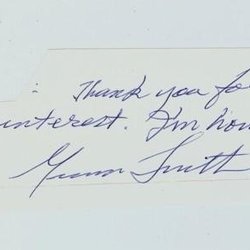 : Thank you fo
interest. I'm hon
Smith